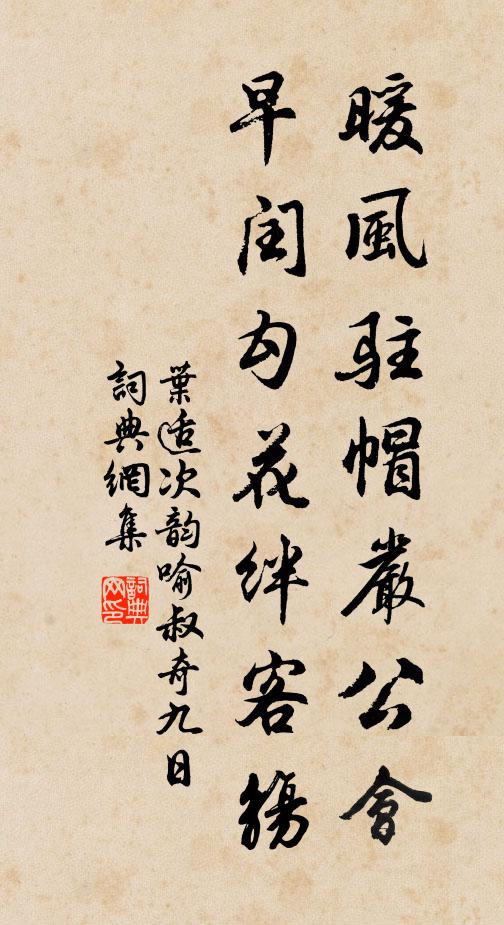 暖風駐帽嚴公會
早閏勾花絆客觴
葉适次韵喻叔奇九日
詞典網集
詞典网印